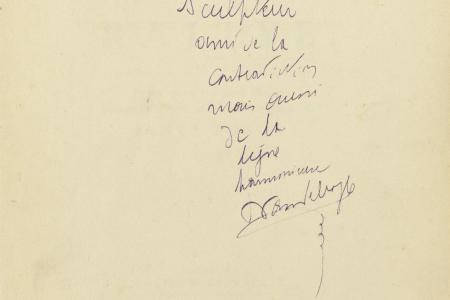 Sculpteur
ami de la
contradiction
mais aussi
de la
ligne
harmonieuse